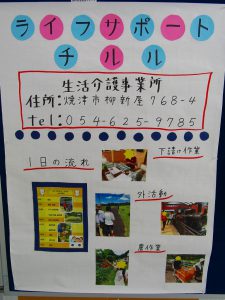 ライフサポート
チルル
生活介護事業所
住所:焼津市柳新屋768-4
tel:054-625-9785
1日の流れ
下請け作業
外活動
農作業